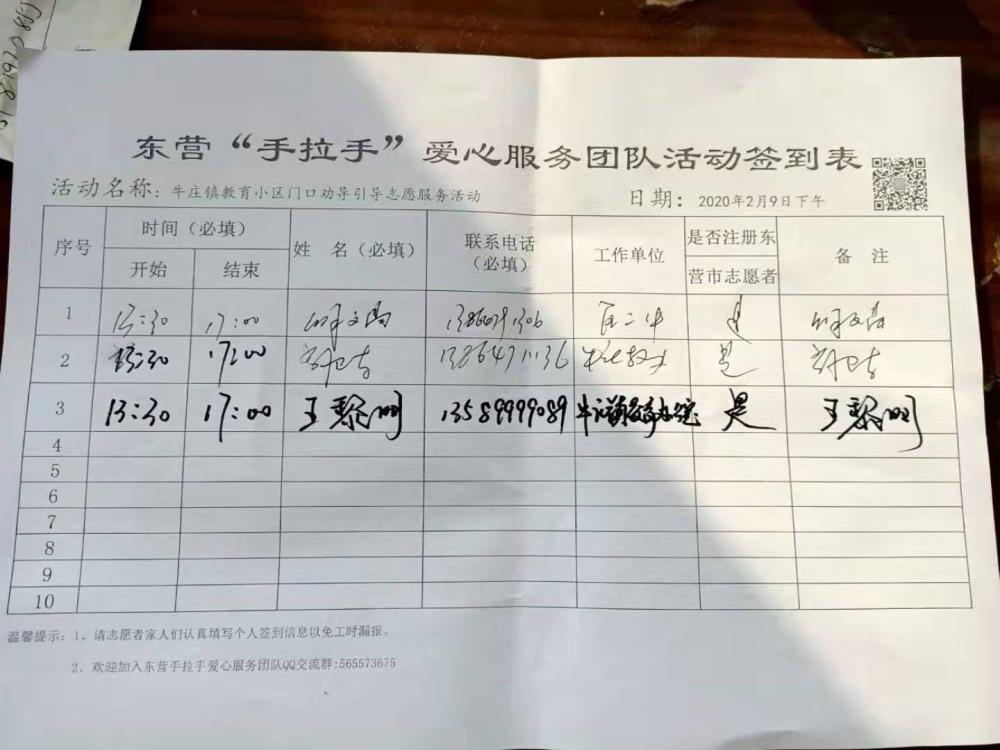 东营“手拉手”爱心服务团队活动签到表
活动名称：牛庄镇教育小区门口劝导引导志愿服务活动 日期：2020年2月9日下午
序号 时间（必填） 姓 名（必填） 联系电话（必填） 工作单位 是否注册东营市志愿者 备 注
开始 结束
1 13:30 17:00 是
2 13:30 17:00 13864711136 是
3 13:30 17:00 王黎明 13589999089 是 王黎明
4
5
6
7
8
9
10
温馨提示：1、请志愿者家人们认真填写个人签到信息以免工时漏报。
2、欢迎加入东营手拉手爱心服务团队QQ交流群:565573675